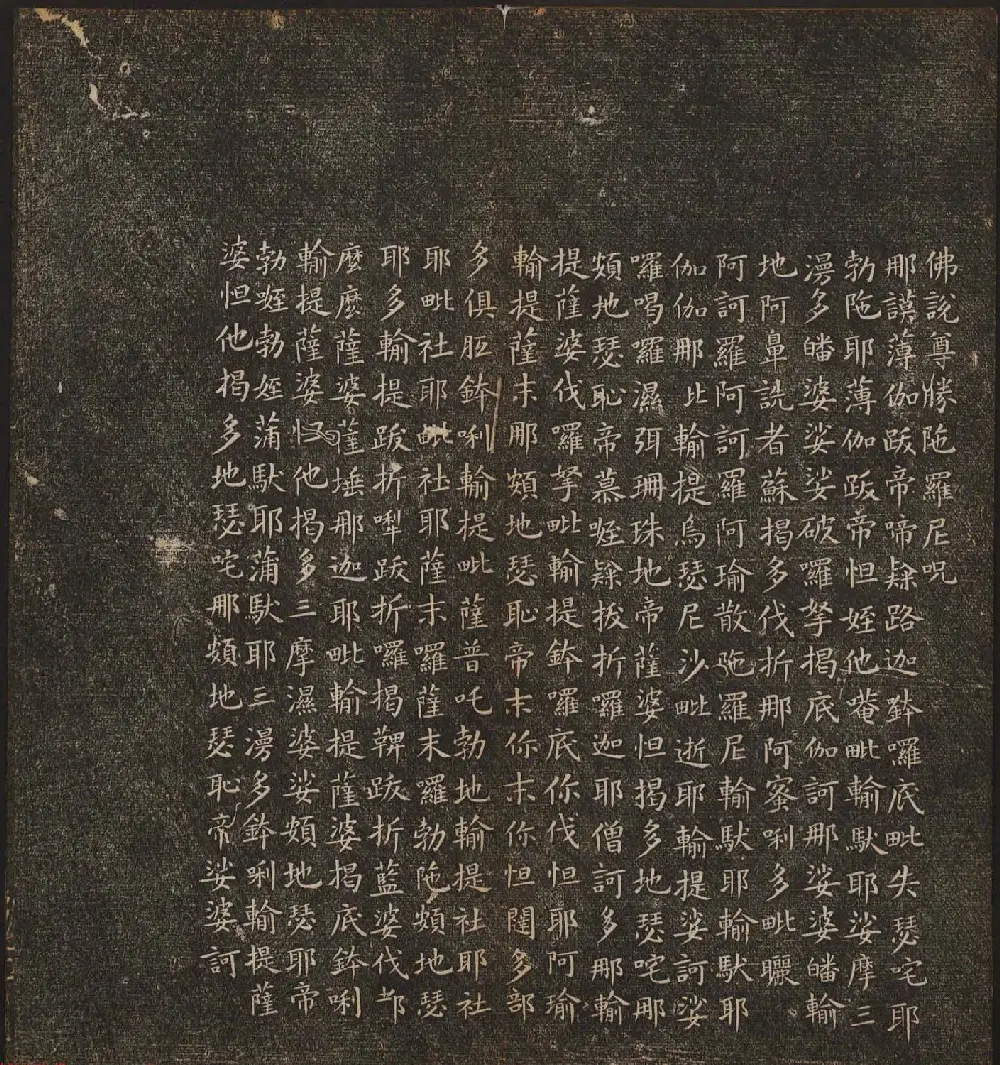 佛說尊勝陁羅尼呪
那謨薄伽跋帝啼隸路迦鉢囉底毗失瑟咤耶
勃陁耶薄伽跋帝怛姪他唵毗輸馱耶娑摩三
漫多皤婆娑娑破囉拏揭底伽訶那娑婆皤輸
地阿鼻詵者蘇揭多伐折那阿蜜唎多毗曬
阿訶羅阿訶羅阿瑜散陁羅尼輸馱耶輸馱耶
伽伽那比輸提烏瑟尼沙毗逝耶輸提娑訶娑
囉喝囉濕弭珊珠地帝薩婆怛揭多地瑟咤那
頞地瑟恥帝慕姪隸拔折囉迦耶僧訶多那輸
提薩婆伐囉拏毗輸提鉢囉底你伐怛耶阿瑜
輸提薩末那頞地瑟恥帝末你末你怛闥多部
多俱胝鉢唎輸提毗薩普吒勃地輸提社耶社
耶毗社耶毗社耶薩末囉薩末羅勃陁頞地瑟
耶多輸提跋折犁跋折囉揭鞞跋折藍婆伐
麼麼薩婆薩埵那迦耶毗輸提薩婆揭底鉢唎
輸提薩婆怛他揭多三摩濕婆娑頞地瑟耶帝
勃姪勃姪蒲馱耶蒲馱耶三漫多鉢唎輸提薩
婆怛他揭多地瑟咤那頞地瑟恥帝娑婆訶